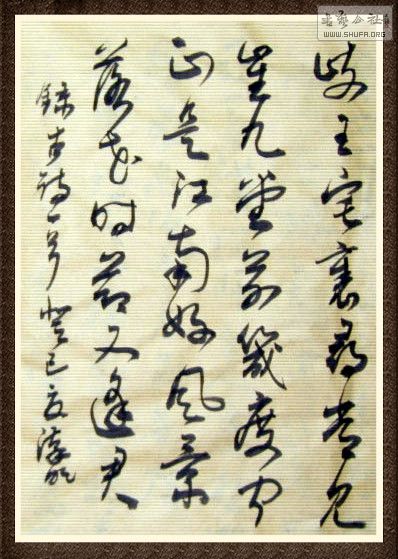 书艺公社
WWW.SHUFA.ORG
岐王宅裏尋常見
崔九堂前幾度聞
正是江南好風景
落花時節又逢君
録古詩一首癸巳夏